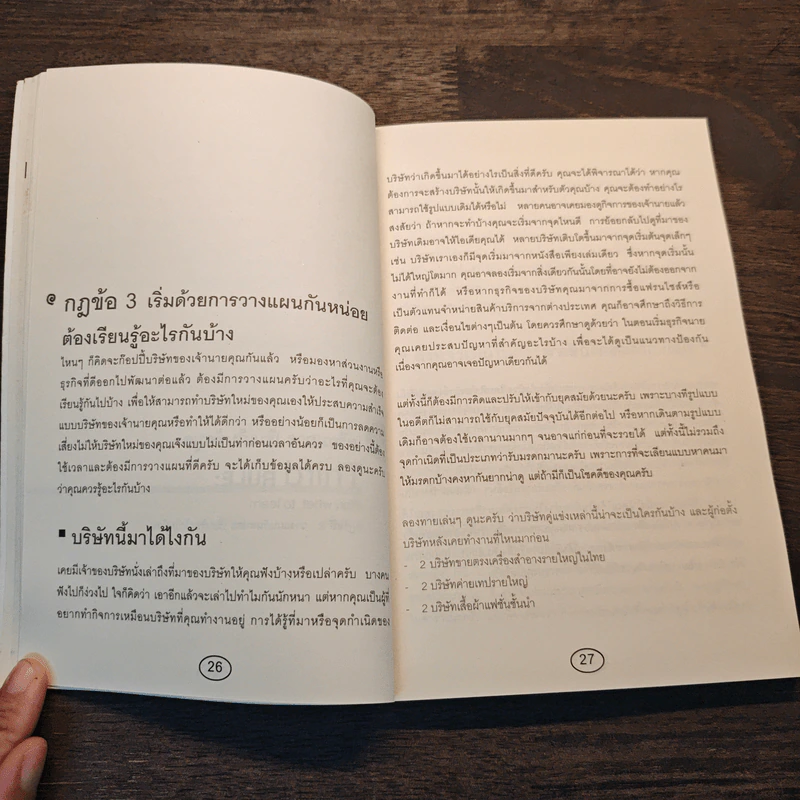 กฎข้อ 3 เริ่มด้วยการวางแผนกันหน่อย
ต้องเรียนรู้อะไรกันบ้าง
ไหนๆ ก็คิดจะก๊อปปี้บริษัทของเจ้านายคุณกันแล้ว หรือมองหาส่วนงานหรือ
ธุรกิจที่ดีออกไปพัฒนาต่อแล้ว ต้องมีการวางแผนครับว่าอะไรที่คุณจะต้อง
เรียนรู้กันไปบ้าง เพื่อให้สามารถทำบริษัทใหม่ของคุณเองให้ประสบความสำเร็จ
แบบบริษัทของเจ้านายคุณหรือทำให้ได้ดีกว่า หรืออย่างน้อยก็เป็นการลดความ
เสี่ยงไม่ให้บริษัทใหม่ของคุณเจ๊งแบบไม่เป็นท่าก่อนเวลาอันควร ของอย่างนี้ต้อง
ใช้เวลาและต้องมีการวางแผนที่ดีครับ จะได้เก็บข้อมูลได้ครบ ลองดูนะครับ
ว่าคุณควรรู้อะไรกันบ้าง
บริษัทนี้มาได้ไงกัน
เคยมีเจ้าของบริษัทนั่งเล่าถึงที่มาของบริษัทให้คุณฟังบ้างหรือเปล่าครับ บางคน
ฟังไปก็ง่วงไป ใจก็คิดว่า เอาอีกแล้วจะเล่าไปทำไมกันนักหนา แต่หากคุณเป็นผู้ที่
อยากทำกิจการเหมือนบริษัทที่คุณทำงานอยู่ การได้รู้ที่มาหรือจุดกำเนิดของ
26
บริษัทว่าเกิดขึ้นมาได้อย่างไรเป็นสิ่งที่ดีครับ คุณจะได้พิจารณาได้ว่า หากคุณ
ต้องการจะสร้างบริษัทนั้นให้เกิดขึ้นมาสำหรับตัวคุณบ้าง คุณจะต้องทำอย่างไร
สามารถใช้รูปแบบเดิมได้หรือไม่ หลายคนอาจเคยมองดูกิจการของเจ้านายแล้ว
สงสัยว่า ถ้าหากจะทำบ้างคุณจะเริ่มจากจุดไหนดี การย้อยกลับไปดูที่มาของ
บริษัทเดิมอาจให้ไอเดียคุณได้ หลายบริษัทเติบโตขึ้นมาจากจุดเริ่มต้นจุดเล็กๆ
เช่น บริษัทเราเองก็มีจุดเริ่มมาจากหนังสือเพียงเล่มเดียว ซึ่งหากจุดเริ่มนั้น
ไม่ได้ใหญ่โตมาก คุณอาจลองเริ่มจากสิ่งเดียวกันนั้นโดยที่อาจยังไม่ต้องออกจาก
งานที่ทำก็ได้ หรือหากธุรกิจของบริษัทคุณมาจากการซื้อแฟรนไชส์หรือ
เป็นตัวแทนจำหน่ายสินค้าบริการจากต่างประเทศ คุณก็อาจศึกษาถึงวิธีการ
ติดต่อ และเงื่อนไขต่างๆเป็นต้น โดยควรศึกษาดูด้วยว่า ในตอนเริ่มธุรกิจนาย
คุณเคยประสบปัญหาที่สำคัญอะไรบ้าง เพื่อจะได้ดูเป็นแนวทางป้องกัน
เนื่องจากคุณอาจเจอปัญหาเดียวกันได้
แต่ทั้งนี้ก็ต้องมีการคิดและปรับให้เข้ากับยุคสมัยด้วยนะครับ เพราะบางทีรูปแบบ
ในอดีตก็ไม่สามารถใช้กับยุคสมัยปัจจุบันได้อีกต่อไป หรือหากเดินตามรูปแบบ
เดิมก็อาจต้องใช้เวลานานมากๆ จนอาจแก่ก่อนที่จะรวยได้ แต่ทั้งนี้ไม่รวมถึง
จุดกำเนิดที่เป็นประเภทว่ารับมรดกมานะครับ เพราะการที่จะเลียนแบบหาคนมา
ให้มรดกบ้างคงหากันยากน่าดู แต่ถ้ามีก็เป็นโชคดีของคุณครับ
ลองทายเล่นๆ ดูนะครับ ว่าบริษัทคู่แข่งเหล่านี้น่าจะเป็นใครกันบ้าง และผู้ก่อตั้ง
บริษัทหลังเคยทำงานที่ไหนมาก่อน
- 2 บริษัทขายตรงเครื่องสำอางรายใหญ่ในไทย
- 2 บริษัทค่ายเทปรายใหญ่
- 2 บริษัทเสื้อผ้าแฟชั่นชั้นนำ
27